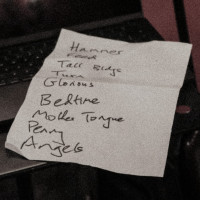 Hammer
Tall Bldgs
Turn
Glorious
Bedtime
Mother Tongue
Penny
Angels